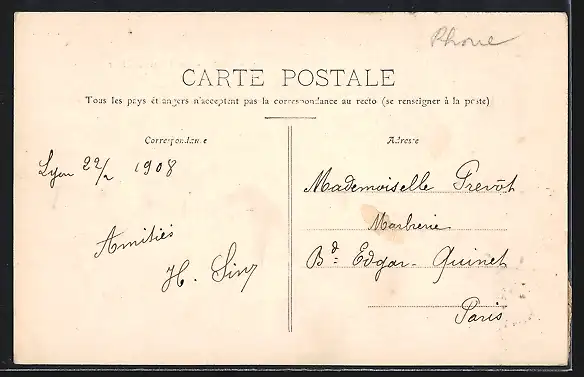 Rhone
CARTE POSTALE
Tous les pays étrangers n'acceptent pas la correspondance au recto (se renseigner à la poste)
Correspondance
Adresse
Lyon 22/2 1908
Mademoiselle Prevôt
Marbrerie
Amitiés
Bd Edgar-Quinet
H.
Paris